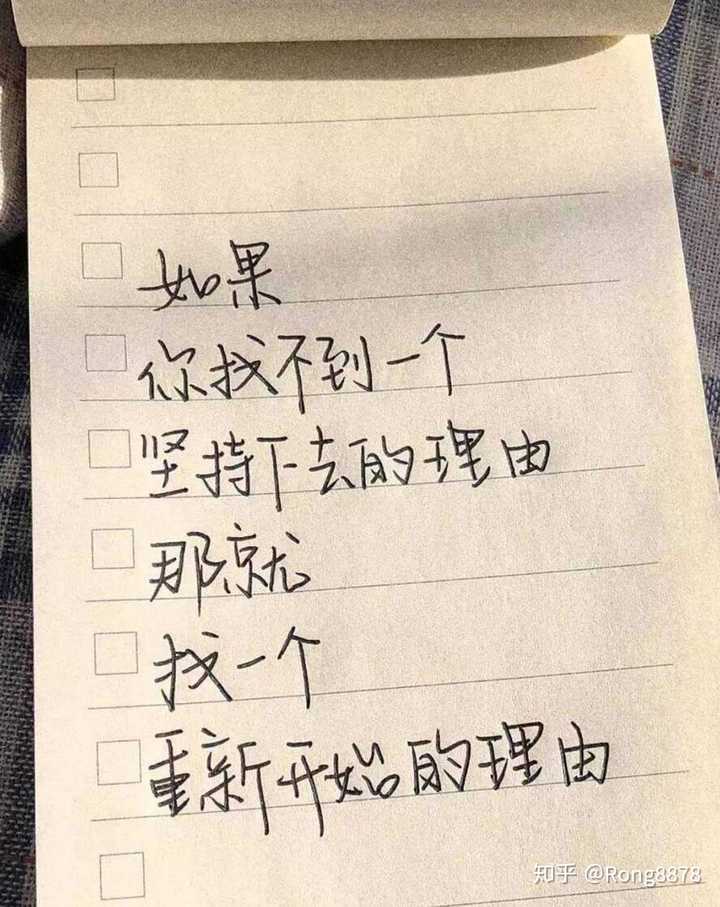 如果
你找不到一个
坚持下去的理由
那就
找一个
重新开始的理由
知乎 @Rong8878